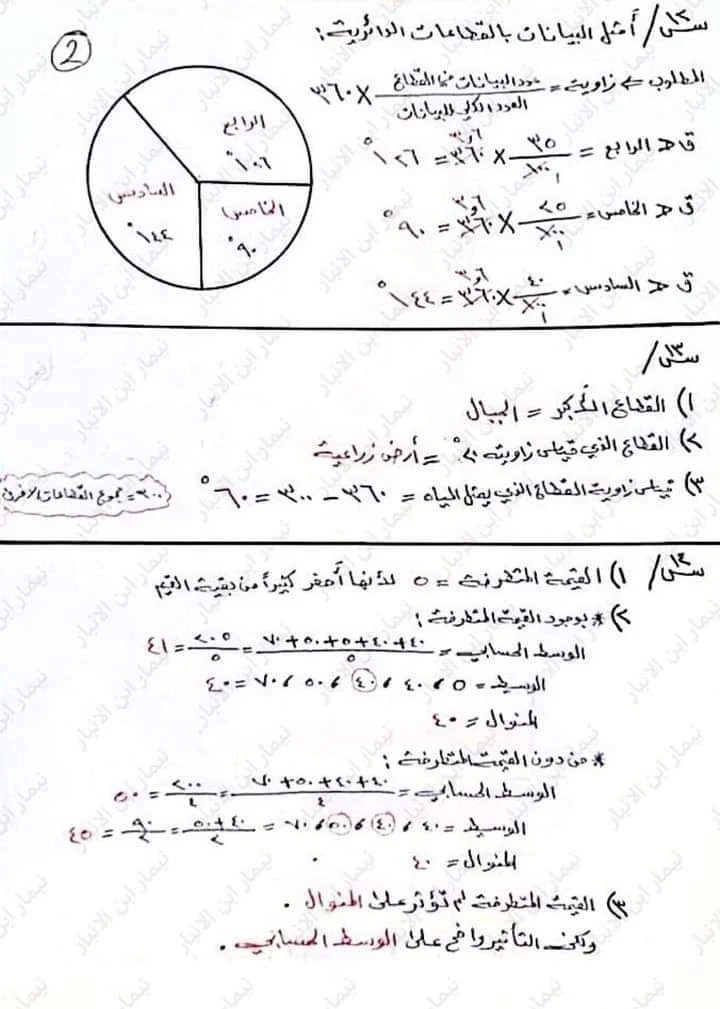 2
س١٢/ أمثل البيانات بالقطاعات الدائرية:
المطلوب ⇐ زاوية = عدد البيانات في القطاع / العدد الكلي للبيانات × ٣٦٠
ق∢ الرابع = ٣٥/١٠٠ × ٣٦٠ = ١٢٦°
ق∢ الخامس = ٢٥/١٠٠ × ٣٦٠ = ٩٠°
ق∢ السادس = ٤٠/١٠٠ × ٣٦٠ = ١٤٤°
الرابع
السادس
١٤٤°
الخامس
٩٠°
س١٣/
١) القطاع الأكبر = الجبال
٢) القطاع الذي قياس زاويته ٢٠° = أرض زراعية
٣) قياس زاوية القطاع الذي يمثل المياه = ٣٦٠ − ٣٠٠ = ٦٠°
٣٠٠ = مجموع القطاعات الأخرى
س١٤/ ١) القيمة المتطرفة = ٥ لأنها أصغر كثيراً من بقية القيم
٢) * بوجود القيمة المتطرفة:
الوسط الحسابي = ٧٠+٥٠+٥+٤٠+٤٠ / ٥ = ٢٠٥/٥ = ٤١
الوسيط = ٥، ٤٠، ٤٠، ٥٠، ٧٠ = ٤٠
المنوال = ٤٠
* من دون القيمة المتطرفة:
الوسط الحسابي = ٧٠+٥٠+٤٠+٤٠ / ٤ = ٢٠٠/٤ = ٥٠
الوسيط = ٤٠، ٤٠، ٥٠، ٧٠ = ٥٠+٤٠/٢ = ٩٠/٢ = ٤٥
المنوال = ٤٠
٣) القيمة المتطرفة لم تؤثر على المنوال.
ولكن التأثير واضح على الوسط الحسابي.
نيمار ابن الانبار